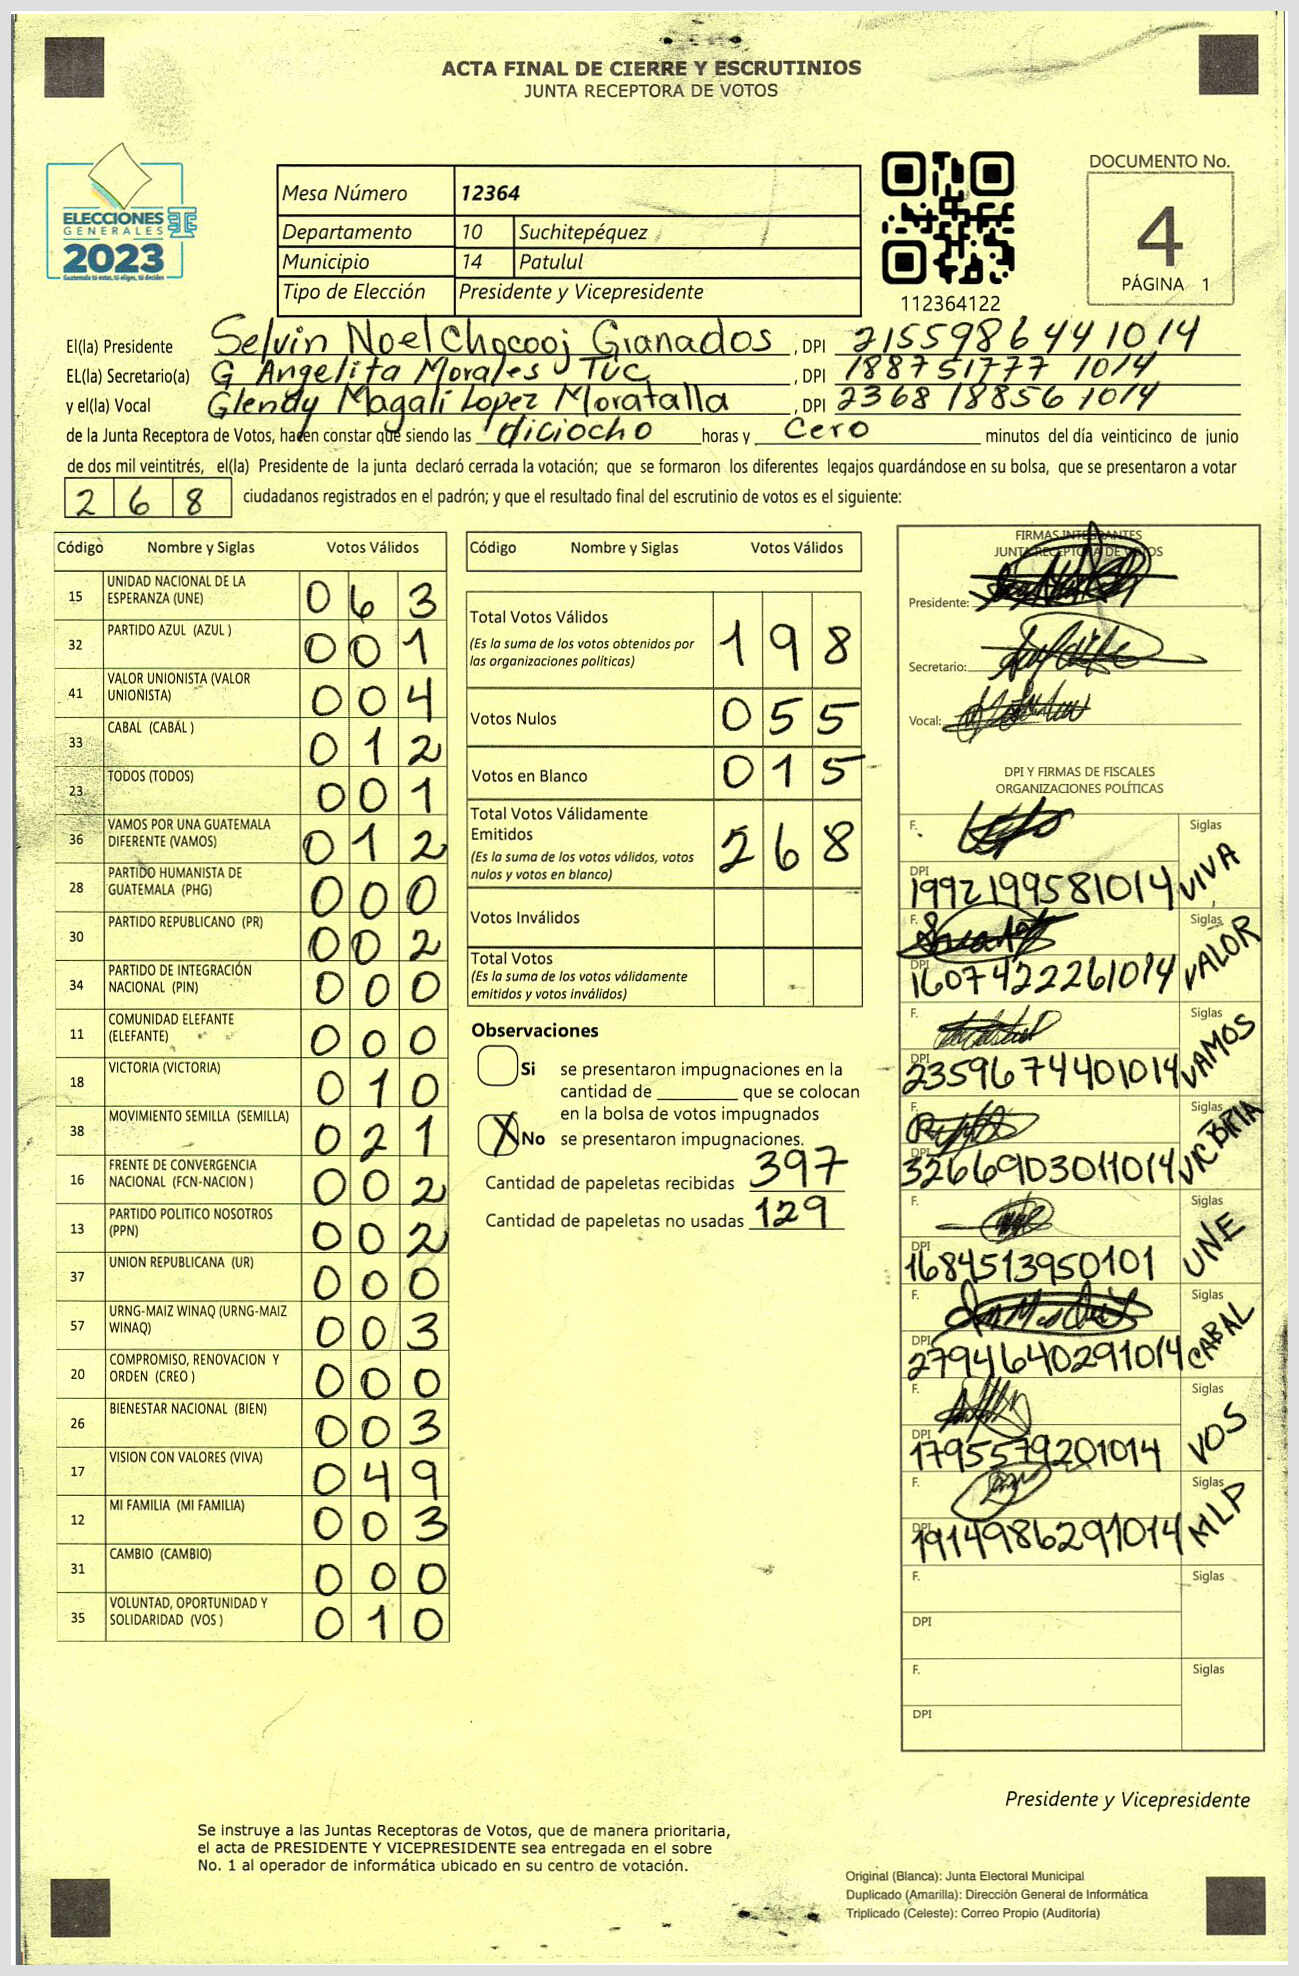 ACTA FINAL DE CIERRE Y ESCRUTINIOS
JUNTA RECEPTORA DE VOTOS
ELECCIONES
GENERALES
2023
Guatemala tú estas, tú eliges, tú decides
Mesa Número 12364
Departamento 10 Suchitepéquez
Municipio 14 Patulul
Tipo de Elección Presidente y Vicepresidente
112364122
DOCUMENTO No.
4
PÁGINA 1
El(la) Presidente Selvin Noel Chocooj Granados , DPI 2155986441014
EL(la) Secretario(a) G Angelita Morales Tuc , DPI 188751777 1014
y el(la) Vocal Glendy Magali Lopez Moratalla , DPI 2368 18856 1014
de la Junta Receptora de Votos, hacen constar que siendo las diciocho horas y cero minutos del día veinticinco de junio
de dos mil veintitrés, el(la) Presidente de la junta declaró cerrada la votación; que se formaron los diferentes legajos guardándose en su bolsa, que se presentaron a votar
268 ciudadanos registrados en el padrón; y que el resultado final del escrutinio de votos es el siguiente:
Código Nombre y Siglas Votos Válidos
15 UNIDAD NACIONAL DE LA ESPERANZA (UNE) 063
32 PARTIDO AZUL (AZUL ) 001
41 VALOR UNIONISTA (VALOR UNIONISTA) 004
33 CABAL (CABÁL ) 012
23 TODOS (TODOS) 001
36 VAMOS POR UNA GUATEMALA DIFERENTE (VAMOS) 012
28 PARTIDO HUMANISTA DE GUATEMALA (PHG) 000
30 PARTIDO REPUBLICANO (PR) 002
34 PARTIDO DE INTEGRACIÓN NACIONAL (PIN) 000
11 COMUNIDAD ELEFANTE (ELEFANTE) 000
18 VICTORIA (VICTORIA) 010
38 MOVIMIENTO SEMILLA (SEMILLA) 021
16 FRENTE DE CONVERGENCIA NACIONAL (FCN-NACION ) 002
13 PARTIDO POLITICO NOSOTROS (PPN) 002
37 UNION REPUBLICANA (UR) 000
57 URNG-MAIZ WINAQ (URNG-MAIZ WINAQ) 003
20 COMPROMISO, RENOVACION Y ORDEN (CREO ) 000
26 BIENESTAR NACIONAL (BIEN) 003
17 VISION CON VALORES (VIVA) 049
12 MI FAMILIA (MI FAMILIA) 003
31 CAMBIO (CAMBIO) 000
35 VOLUNTAD, OPORTUNIDAD Y SOLIDARIDAD (VOS ) 010
Código Nombre y Siglas Votos Válidos
Total Votos Válidos 198
(Es la suma de los votos obtenidos por
las organizaciones políticas)
Votos Nulos 055
Votos en Blanco 015
Total Votos Válidamente
Emitidos 268
(Es la suma de los votos válidos, votos
nulos y votos en blanco)
Votos Inválidos
Total Votos
(Es la suma de los votos válidamente
emitidos y votos inválidos)
Observaciones
Si se presentaron impugnaciones en la
cantidad de ________ que se colocan
en la bolsa de votos impugnados
X No se presentaron impugnaciones.
Cantidad de papeletas recibidas 397
Cantidad de papeletas no usadas 129
FIRMAS INTEGRANTES
JUNTA RECEPTORA DE VOTOS
Presidente:
Secretario:
Vocal:
DPI Y FIRMAS DE FISCALES
ORGANIZACIONES POLÍTICAS
F. Siglas
DPI 1992199581014 VIVA
F. Siglas
DPI 1607422261014 VALOR
F. Siglas
DPI 2359674401014 VAMOS
F. Siglas
DPI 3266903011014 VICTORIA
F. Siglas
DPI 1684513950101 UNE
F. Siglas
DPI 2794640291014 CABAL
F. Siglas
DPI 1795579201014 VOS
F. Siglas
DPI 1914986291014 MLP
F. Siglas
DPI
F. Siglas
DPI
Presidente y Vicepresidente
Se instruye a las Juntas Receptoras de Votos, que de manera prioritaria,
el acta de PRESIDENTE Y VICEPRESIDENTE sea entregada en el sobre
No. 1 al operador de informática ubicado en su centro de votación.
Original (Blanca): Junta Electoral Municipal
Duplicado (Amarilla): Dirección General de Informática
Triplicado (Celeste): Correo Propio (Auditoría)